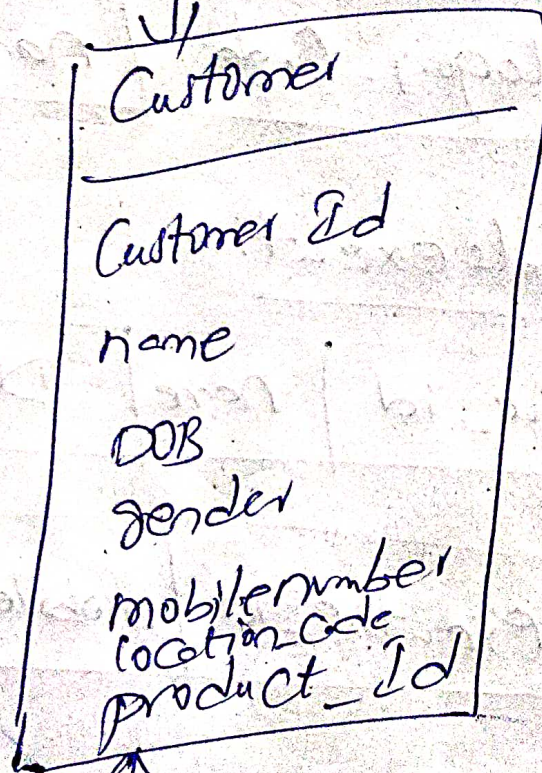 Customer
Customer Id
name
DOB
gender
mobilenumber
location_code
product_Id